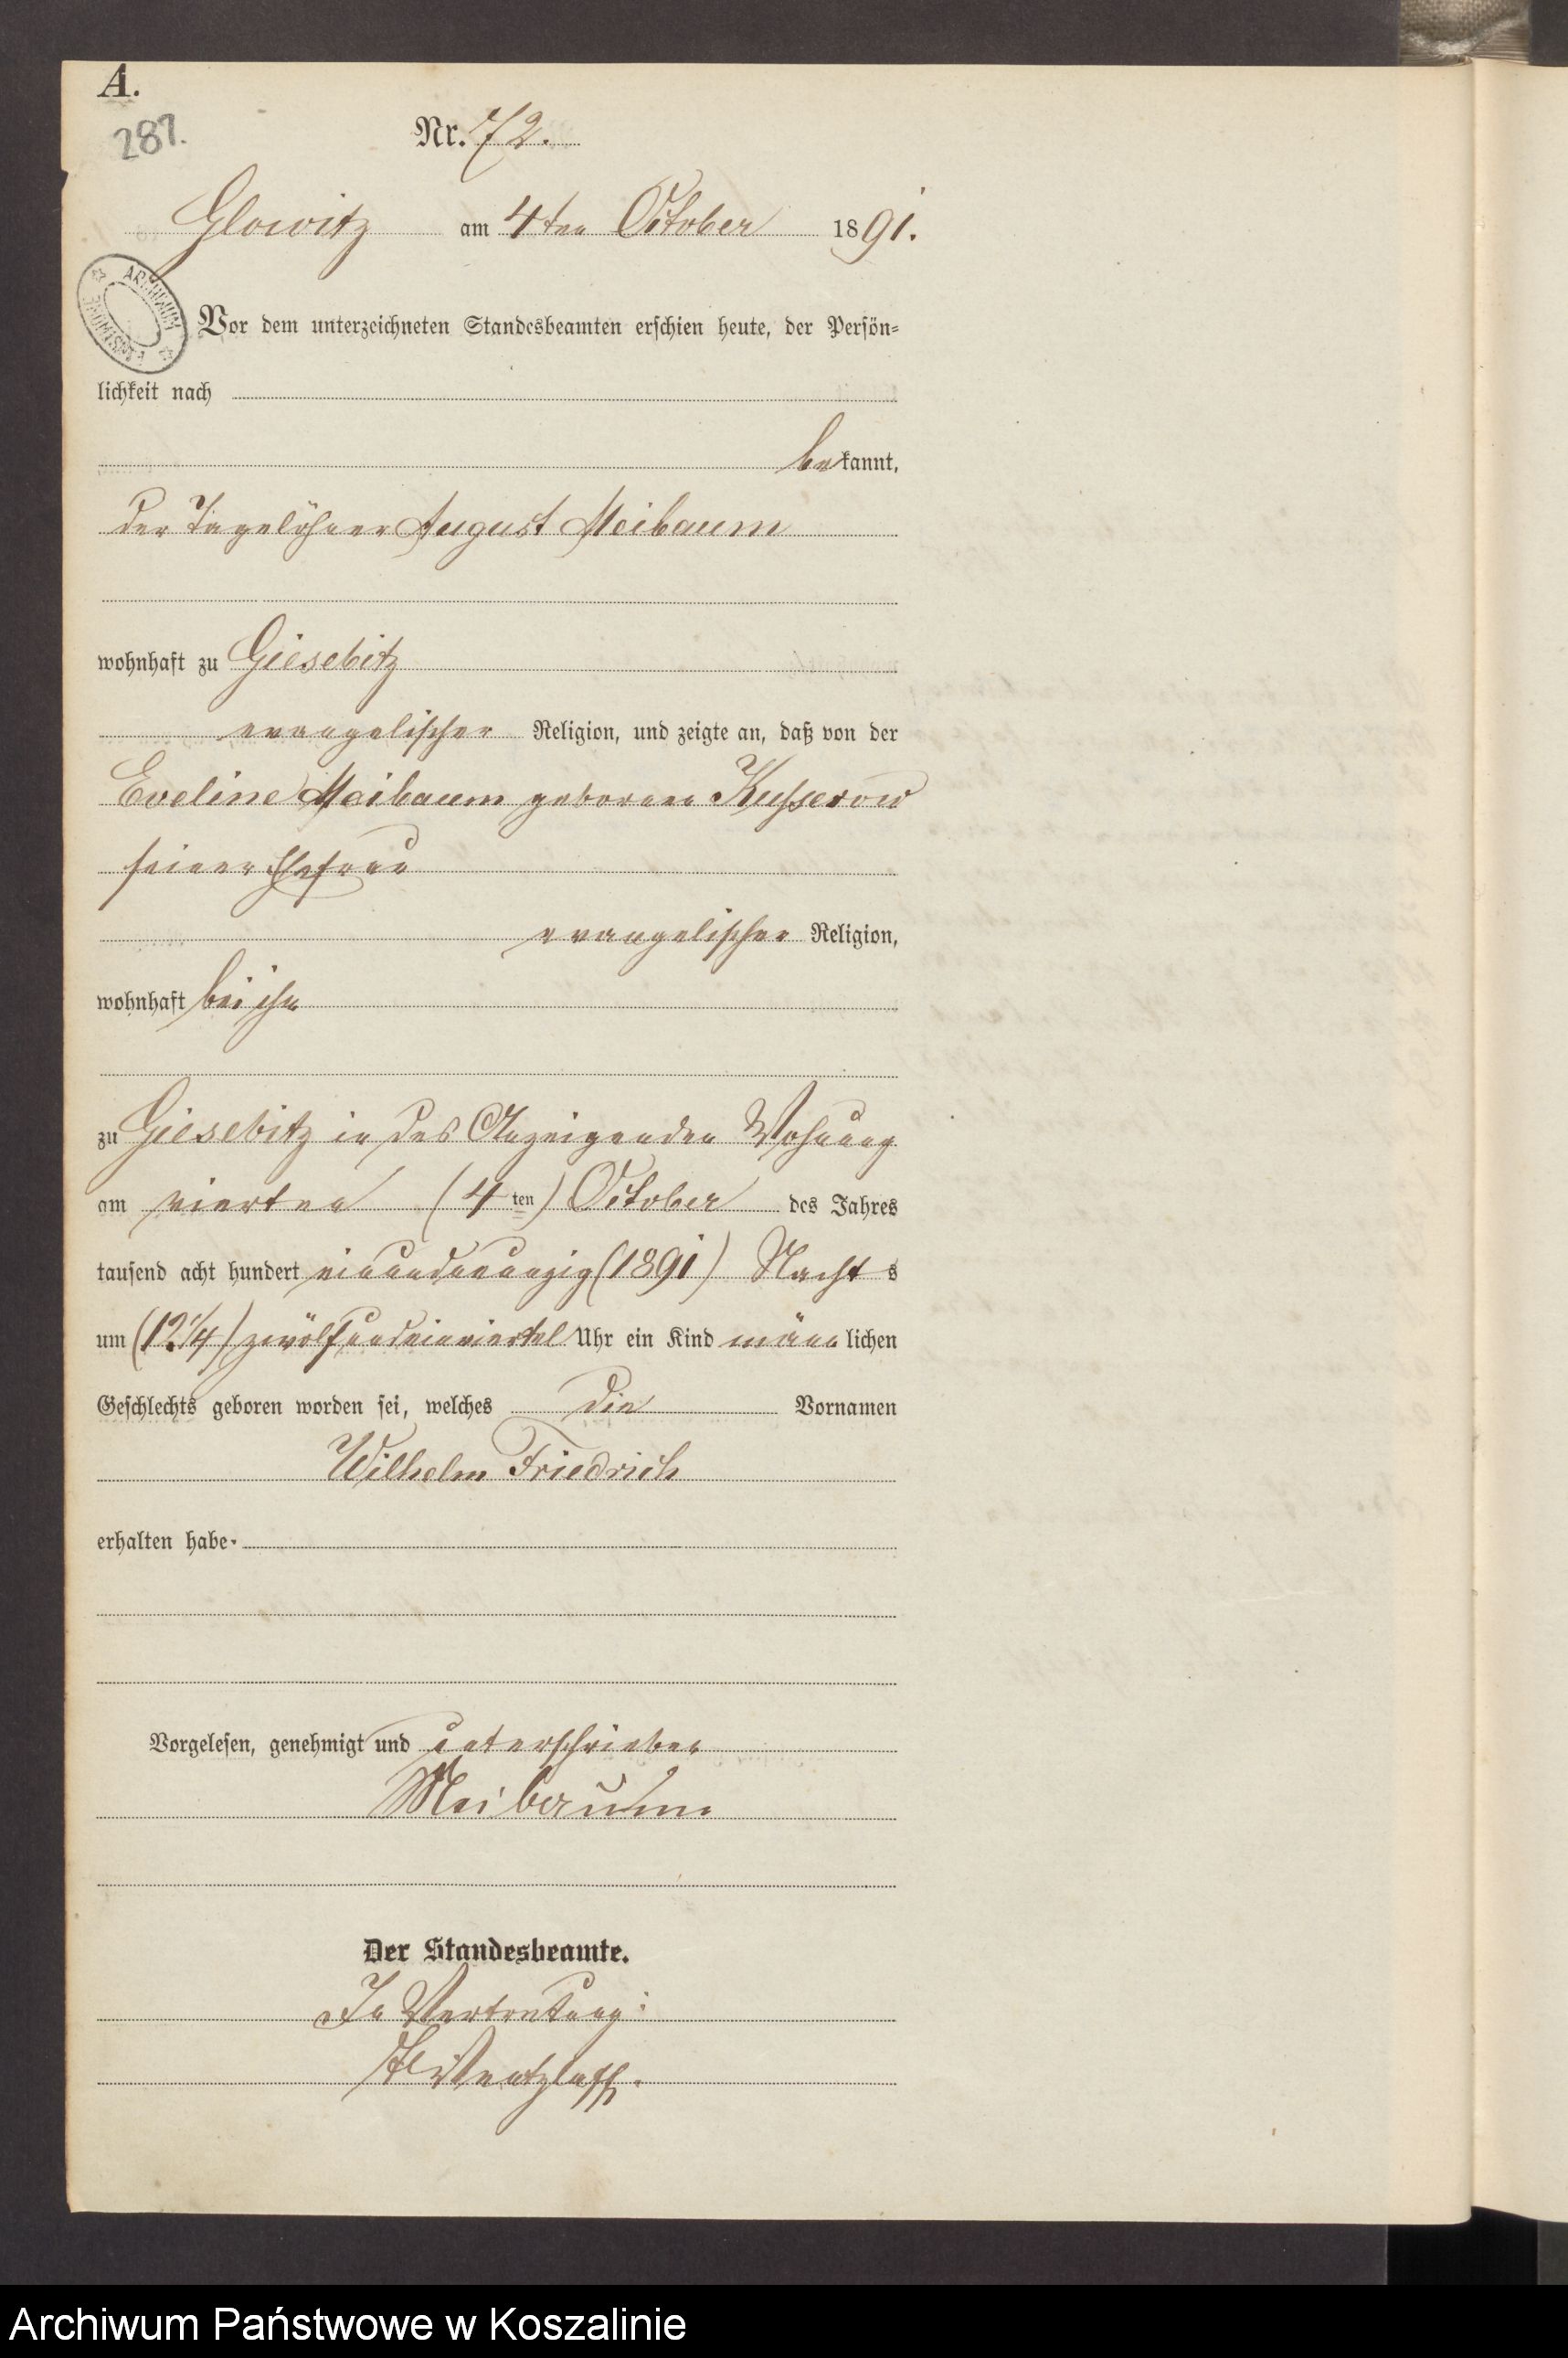 A.
287.
Nr. 72.
Glowitz am 4ten October 1891.
ARCHIWUM PAŃSTWOWE
Vor dem unterzeichneten Standesbeamten erschien heute, der Persön=
lichkeit nach
bekannt,
der Tagelöhner August Meibaum
wohnhaft zu Giesebitz
evangelischer Religion, und zeigte an, daß von der
Eveline Meibaum geborenen Kusserow
seiner Ehefrau
evangelischer Religion,
wohnhaft bei ihm
zu Giesebitz in des Anzeigenden Wohnung
am vierten (4ten) October des Jahres
tausend acht hundert einundneunzig (1891) Nachts
um (12 1/4) zwölfundeinviertel Uhr ein Kind männlichen
Geschlechts geboren worden sei, welches die Vornamen
Wilhelm Friedrich
erhalten habe.
Vorgelesen, genehmigt und unterschrieben
Meibaum
Der Standesbeamte.
In Vertretung:
Wentzlaff.
Archiwum Państwowe w Koszalinie